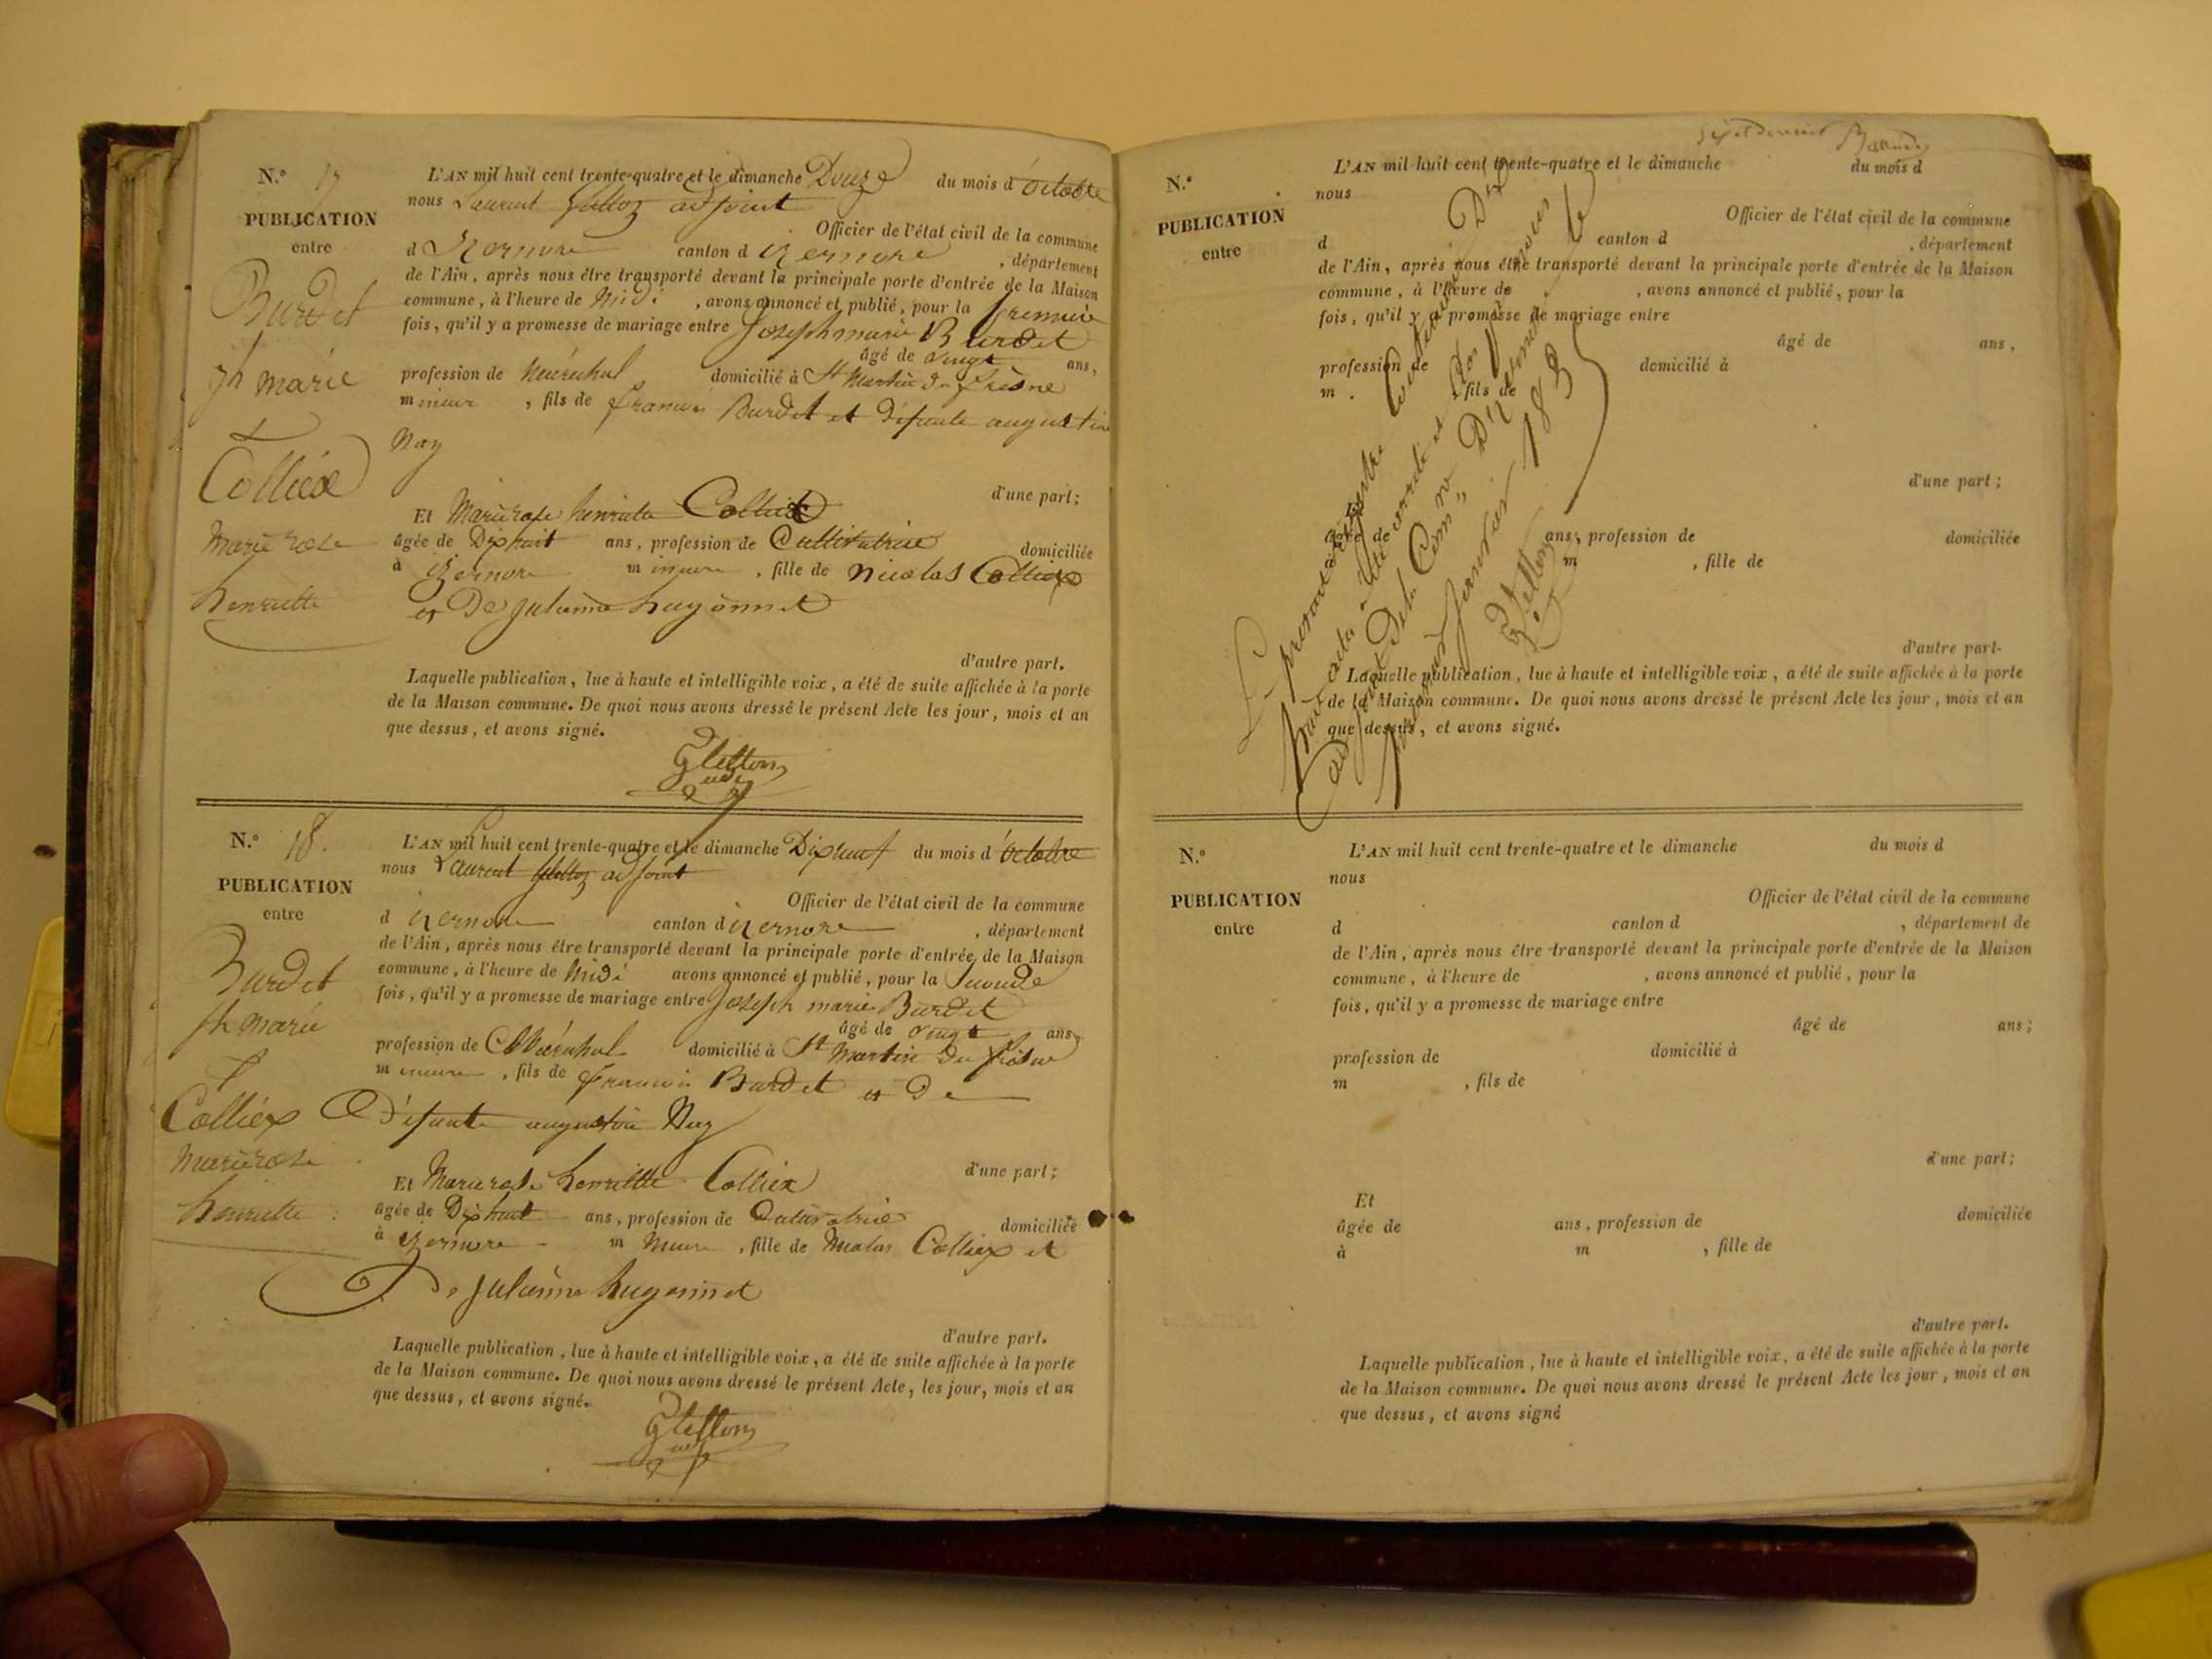 N.° 17
PUBLICATION
entre
Burdet
jh marie
Et
Colliex
Marie rose
henriette
L'AN mil huit cent trente-quatre et le dimanche Douze du mois d'octobre
nous Laurent adjoint
Officier de l'état civil de la commune
d'izernore canton d'izernore , département
de l'Ain, après nous être transporté devant la principale porte d'entrée de la Maison
commune, à l'heure de Midi , avons annoncé et publié, pour la premiere
fois, qu'il y a promesse de mariage entre Joseph marie Burdet
âgé de vingt ans,
profession de Maréchal domicilié à St Martin du fresne
mineur , fils de francois Burdet et défunte augustine
Nay
d'une part;
Et Marie rose henriette Colliex
âgée de Dix huit ans, profession de Cultivatrice domiciliée
à izernore mineure , fille de nicolas Colliex
et De julienne hugonnet
d'autre part.
Laquelle publication, lue à haute et intelligible voix, a été de suite affichée à la porte
de la Maison commune. De quoi nous avons dressé le présent Acte les jour, mois et an
que dessus, et avons signé.
N.° 18.
PUBLICATION
entre
Burdet
jh marie
Et
Colliex
Marie rose
henriette
L'AN mil huit cent trente-quatre et le dimanche Dixneuf du mois d'octobre
nous Laurent adjoint
Officier de l'état civil de la commune
d'izernore canton d'izernore , département
de l'Ain, après nous être transporté devant la principale porte d'entrée de la Maison
commune, à l'heure de Midi avons annoncé et publié, pour la seconde
fois, qu'il y a promesse de mariage entre Joseph marie Burdet
âgé de vingt ans,
profession de Maréchal domicilié à St Martin du fresne
mineur , fils de francois Burdet et De
Défunte augustine Nay
d'une part;
Et Marie rose henriette Colliex
âgée de Dix huit ans, profession de Cultivatrice domiciliée
à izernore mineure , fille de Nicolas Colliex et
De julienne hugonnet
d'autre part.
Laquelle publication, lue à haute et intelligible voix, a été de suite affichée à la porte
de la Maison commune. De quoi nous avons dressé le présent Acte, les jour, mois et an
que dessus, et avons signé.
N.°
PUBLICATION
entre
L'AN mil huit cent trente-quatre et le dimanche du mois d
nous
Officier de l'état civil de la commune
d canton d , département
de l'Ain, après nous être transporté devant la principale porte d'entrée de la Maison
commune, à l'heure de , avons annoncé et publié, pour la
fois, qu'il y a promesse de mariage entre
âgé de ans,
profession de domicilié à
m , fils de
d'une part;
Et
âgée de ans, profession de domiciliée
m , fille de
d'autre part-
Laquelle publication, lue à haute et intelligible voix, a été de suite affichée à la porte
de la Maison commune. De quoi nous avons dressé le présent Acte les jour, mois et an
que dessus, et avons signé.
Le present registre
huit arrêté et clos par
adjoint De la Com.ne D'izernore
janvier 183
N.°
PUBLICATION
entre
L'AN mil huit cent trente-quatre et le dimanche du mois d
nous
Officier de l'état civil de la commune
d canton d , département de
de l'Ain, après nous être transporté devant la principale porte d'entrée de la Maison
commune, à l'heure de , avons annoncé et publié, pour la
fois, qu'il y a promesse de mariage entre
âgé de ans;
profession de domicilié à
m , fils de
d'une part;
Et
âgée de ans, profession de domiciliée
à m , fille de
d'autre part.
Laquelle publication, lue à haute et intelligible voix, a été de suite affichée à la porte
de la Maison commune. De quoi nous avons dressé le présent Acte les jour, mois et an
que dessus, et avons signé